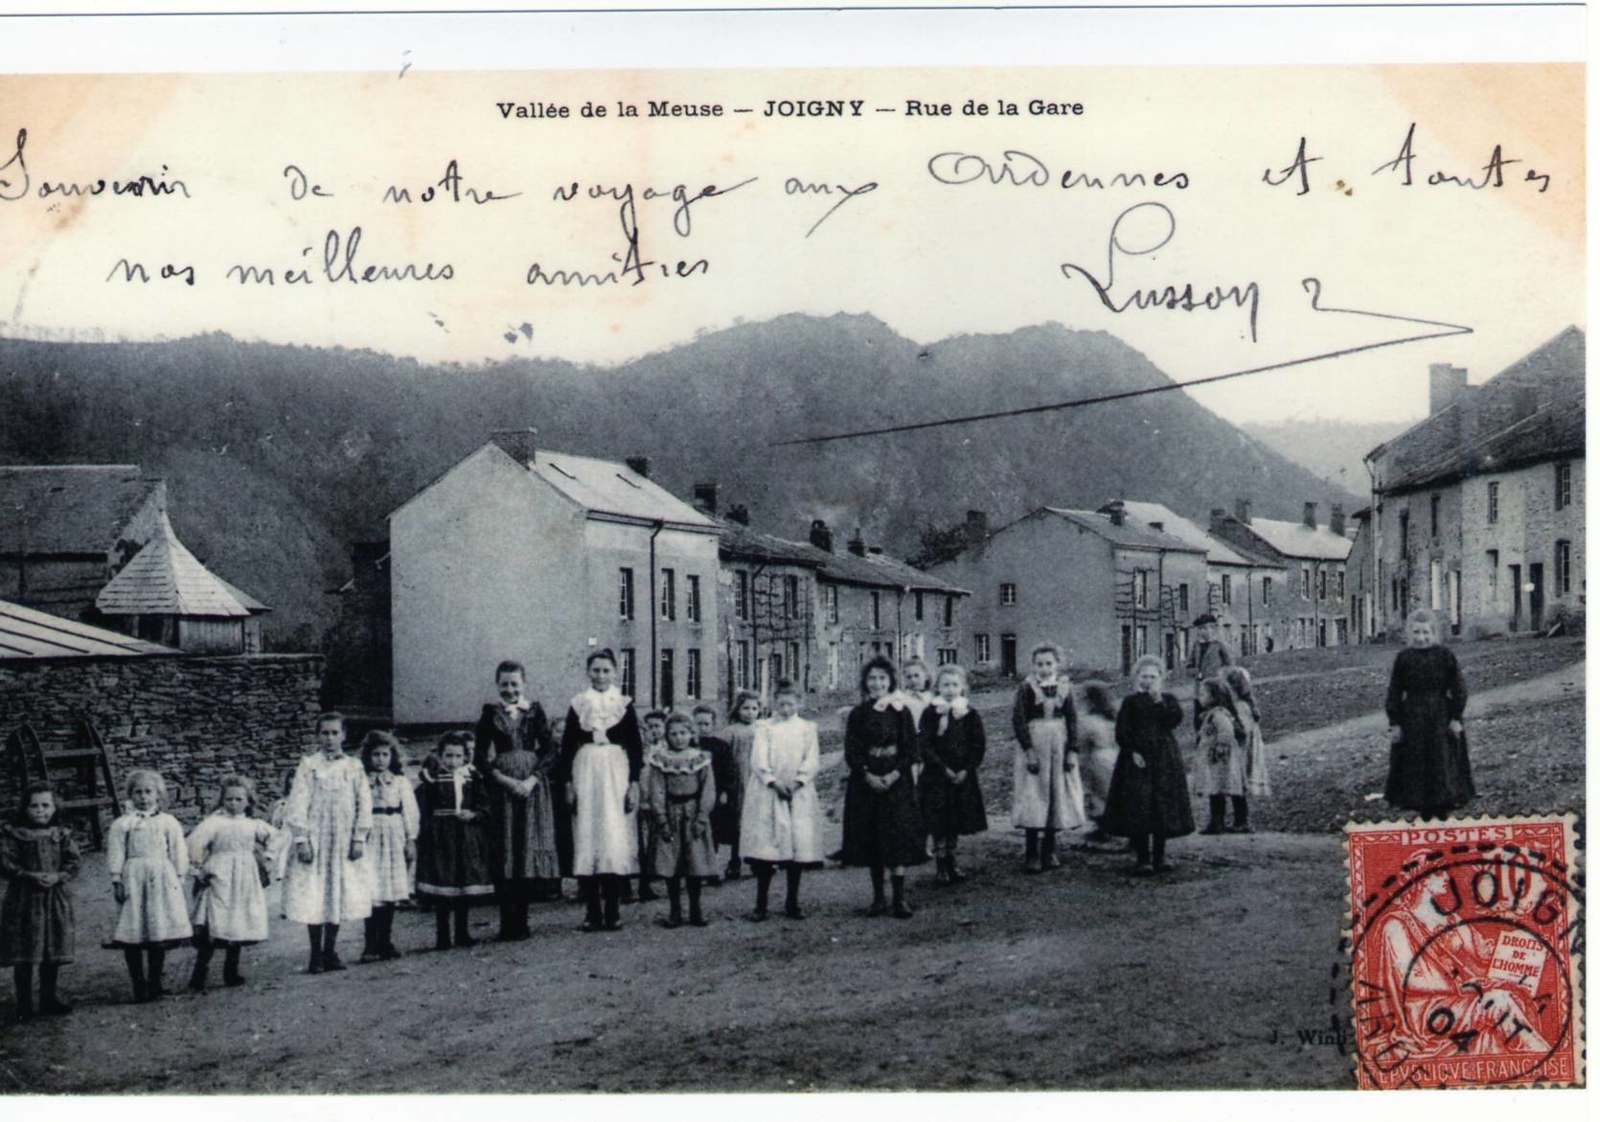 Vallée de la Meuse — JOIGNY — Rue de la Gare
Souvenir de notre voyage aux Ardennes et toutes
nos meilleures amitiés
Lusson
POSTES
10
JOIGN
DROITS
DE
L'HOMME
OUT
04
ARD
REPVBLIQVE FRANÇAISE
J. Win